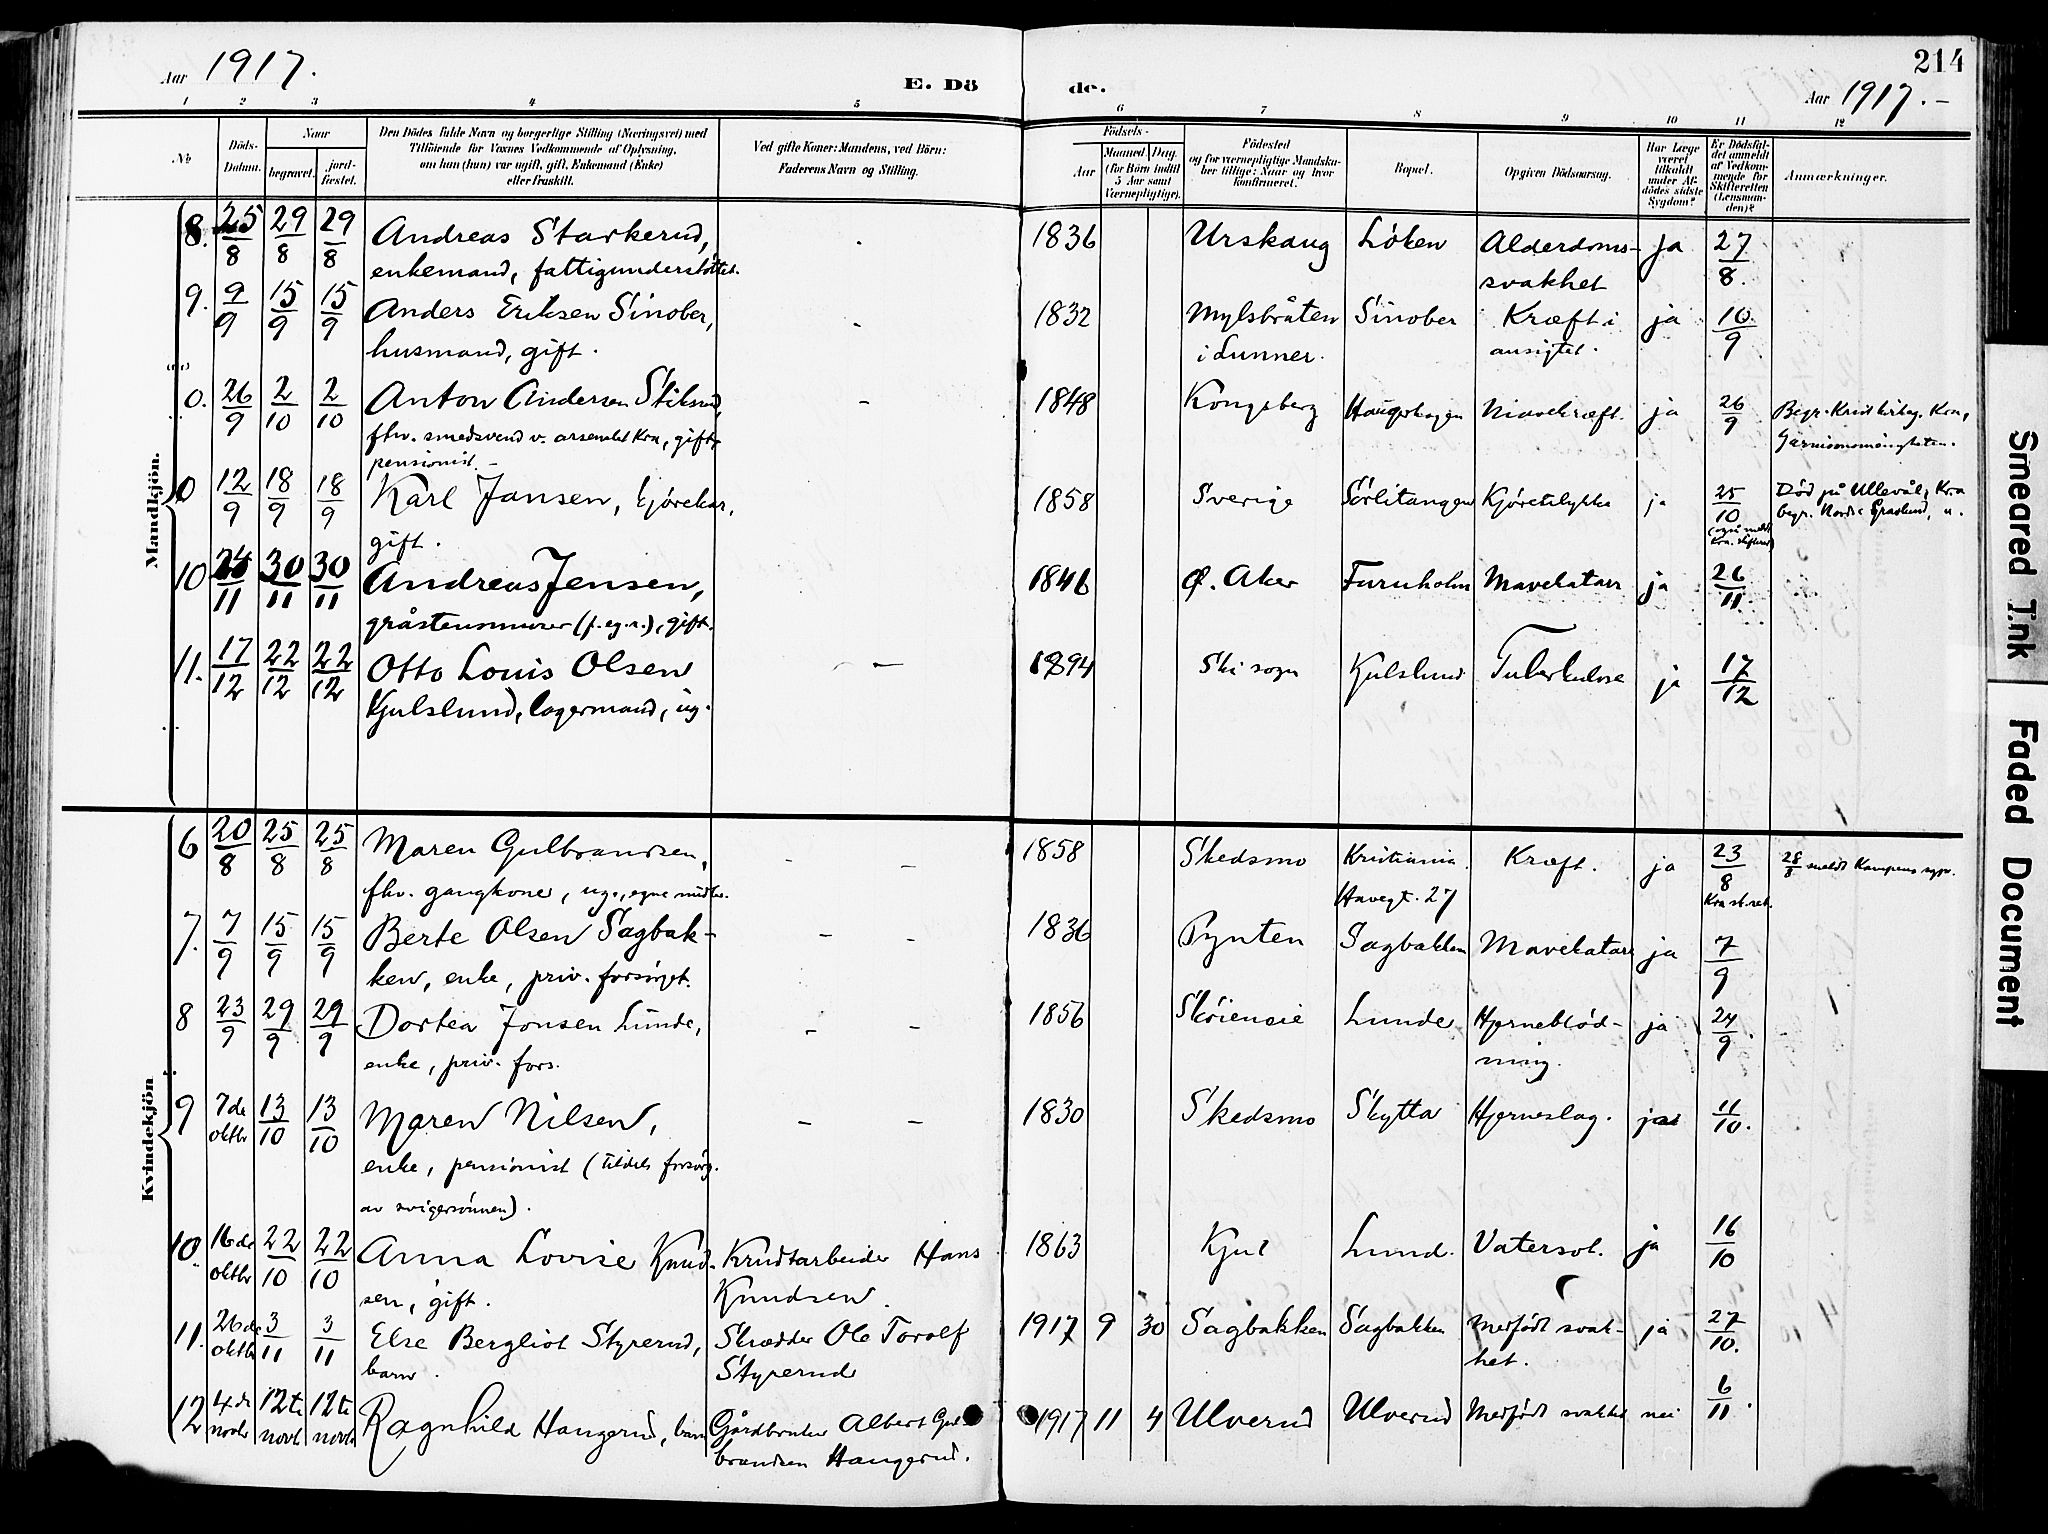 214
Aar 1917.
E. Dö de.
Aar 1917.-
1 2 3 4 5 6 7 8 9 10 11 12
No
Döds-Datum.
Naar
begravet.
jord-fæstet.
Den Dödes fulde Navn og borgerlige Stilling (Næringsvei) med
Tilföiende for Voxnes Vedkommende af Oplysning,
om han (hun) var ugift, gift, Enkemand (Enke)
eller fraskilt.
Ved gifte Koner: Mandens, ved Börn:
Faderens Navn og Stilling.
Födsels-
Aar
Maaned. Dag.
(for Börn indtil
5 Aar samt
Værnepligtige).
Födested
og for værnepligtige Mandska-
ber tillige: Naar og hvor
konfirmeret.
Bopæl.
Opgiven Dödsaarsag.
Har Læge
været
tilkaldt
under Af-
dödes sidste
Sygdom?
Er Dödsfal-
det anmeldt
af Vedkom-
mende for
Skifteretten
(Lensman-
den)?
Anmærkninger.
Mandkjön.
8. 25/8 29/8 29/8 Andreas Starkerud, 1836 Urskaug Löken Alderdoms- ja 27/8.
enkemand, fattigunderstöttet. svakhet
9. 9/9 15/9 15/9 Anders Eriksen Sinober, 1832 Mylsbråten Sinober Kræft i ja 10/9
husmand, gift. i Lunner. ansigtet.
0. 26/9 2/10 2/10 Anton Andersen - 1848 Kongsberg Haugskogen ja 26/9
fhv. smedsvend v. arsenalet Kra, gift, Garnisonsmenigheten.
pensionist. -
0 12/9 18/9 18/9 Karl Jansen, kjörekar, 1858 Sverige Sörlitangen Kjöreulykke ja 25/10 Död på Ullevål, Kra
gift. begr. Nordre Gravlund,
10 24/11 30/11 30/11 Andreas Jensen, 1846 Ø. Aker Furuholm Mavekatarr ja 26/11.
gråstensmurer gift.
11. 17/12 22/12 22/12 Otto Louis Olsen - 1894 Ski sogn Kjulslund Tuberkulose ja 17/12
Kjulslund, lagermand, ug.
Kvindekjön
6 20/8 25/8 25/8 Maren Gulbrandsen, - - 1858 Skedsmo Kristiania. Kræft. ja 23/8 28/8 meldt Kampens
fhv. gangkone, ug., egne midler. 27
7. 7/9 15/9 15/9 Berte Olsen Sagbak- - - 1836 Pynten Sagbakken Mavekatarr ja 7/9
ken, enke, priv. forsörget.
8 23/9 29/9 29/9 Dortea Jonsen Lunde, - - 1856 Lunde Hjerneblöd- ja 24/9.
enke, priv. fors. ning.
9 7de oktbr 13/10 13/10 Maren Nilsen, - - 1830 Skedsmo Skytta Hjerneslag. ja 11/10.
enke, pensionist (tildels forsörg.
av svigersönnen).
10. 16de oktbr 22/10 22/10 Anna Lovise Knud- Krudtarbeider Hans 1863 Kjul Lund. Vatersot. ja 16/10
sen, gift. Knudsen.
11. 26de oktbr 3/11 3/11 Else Bergliot Styrerud, Skrædder Ole Torolf 1917 9 30 Sagbakken Sagbakken Medfödt svak- ja 27/10.
barn. Styrerud het.
12 4de novbr 12te novb 12te novb Ragnhild Haugerud, barn Gårdbruker Albert Gul- 1917 11 4 Ulverud Ulverud Medfödt svakhet nei 6/11.
brandsen Haugerud.
Smeared Ink
Faded Document